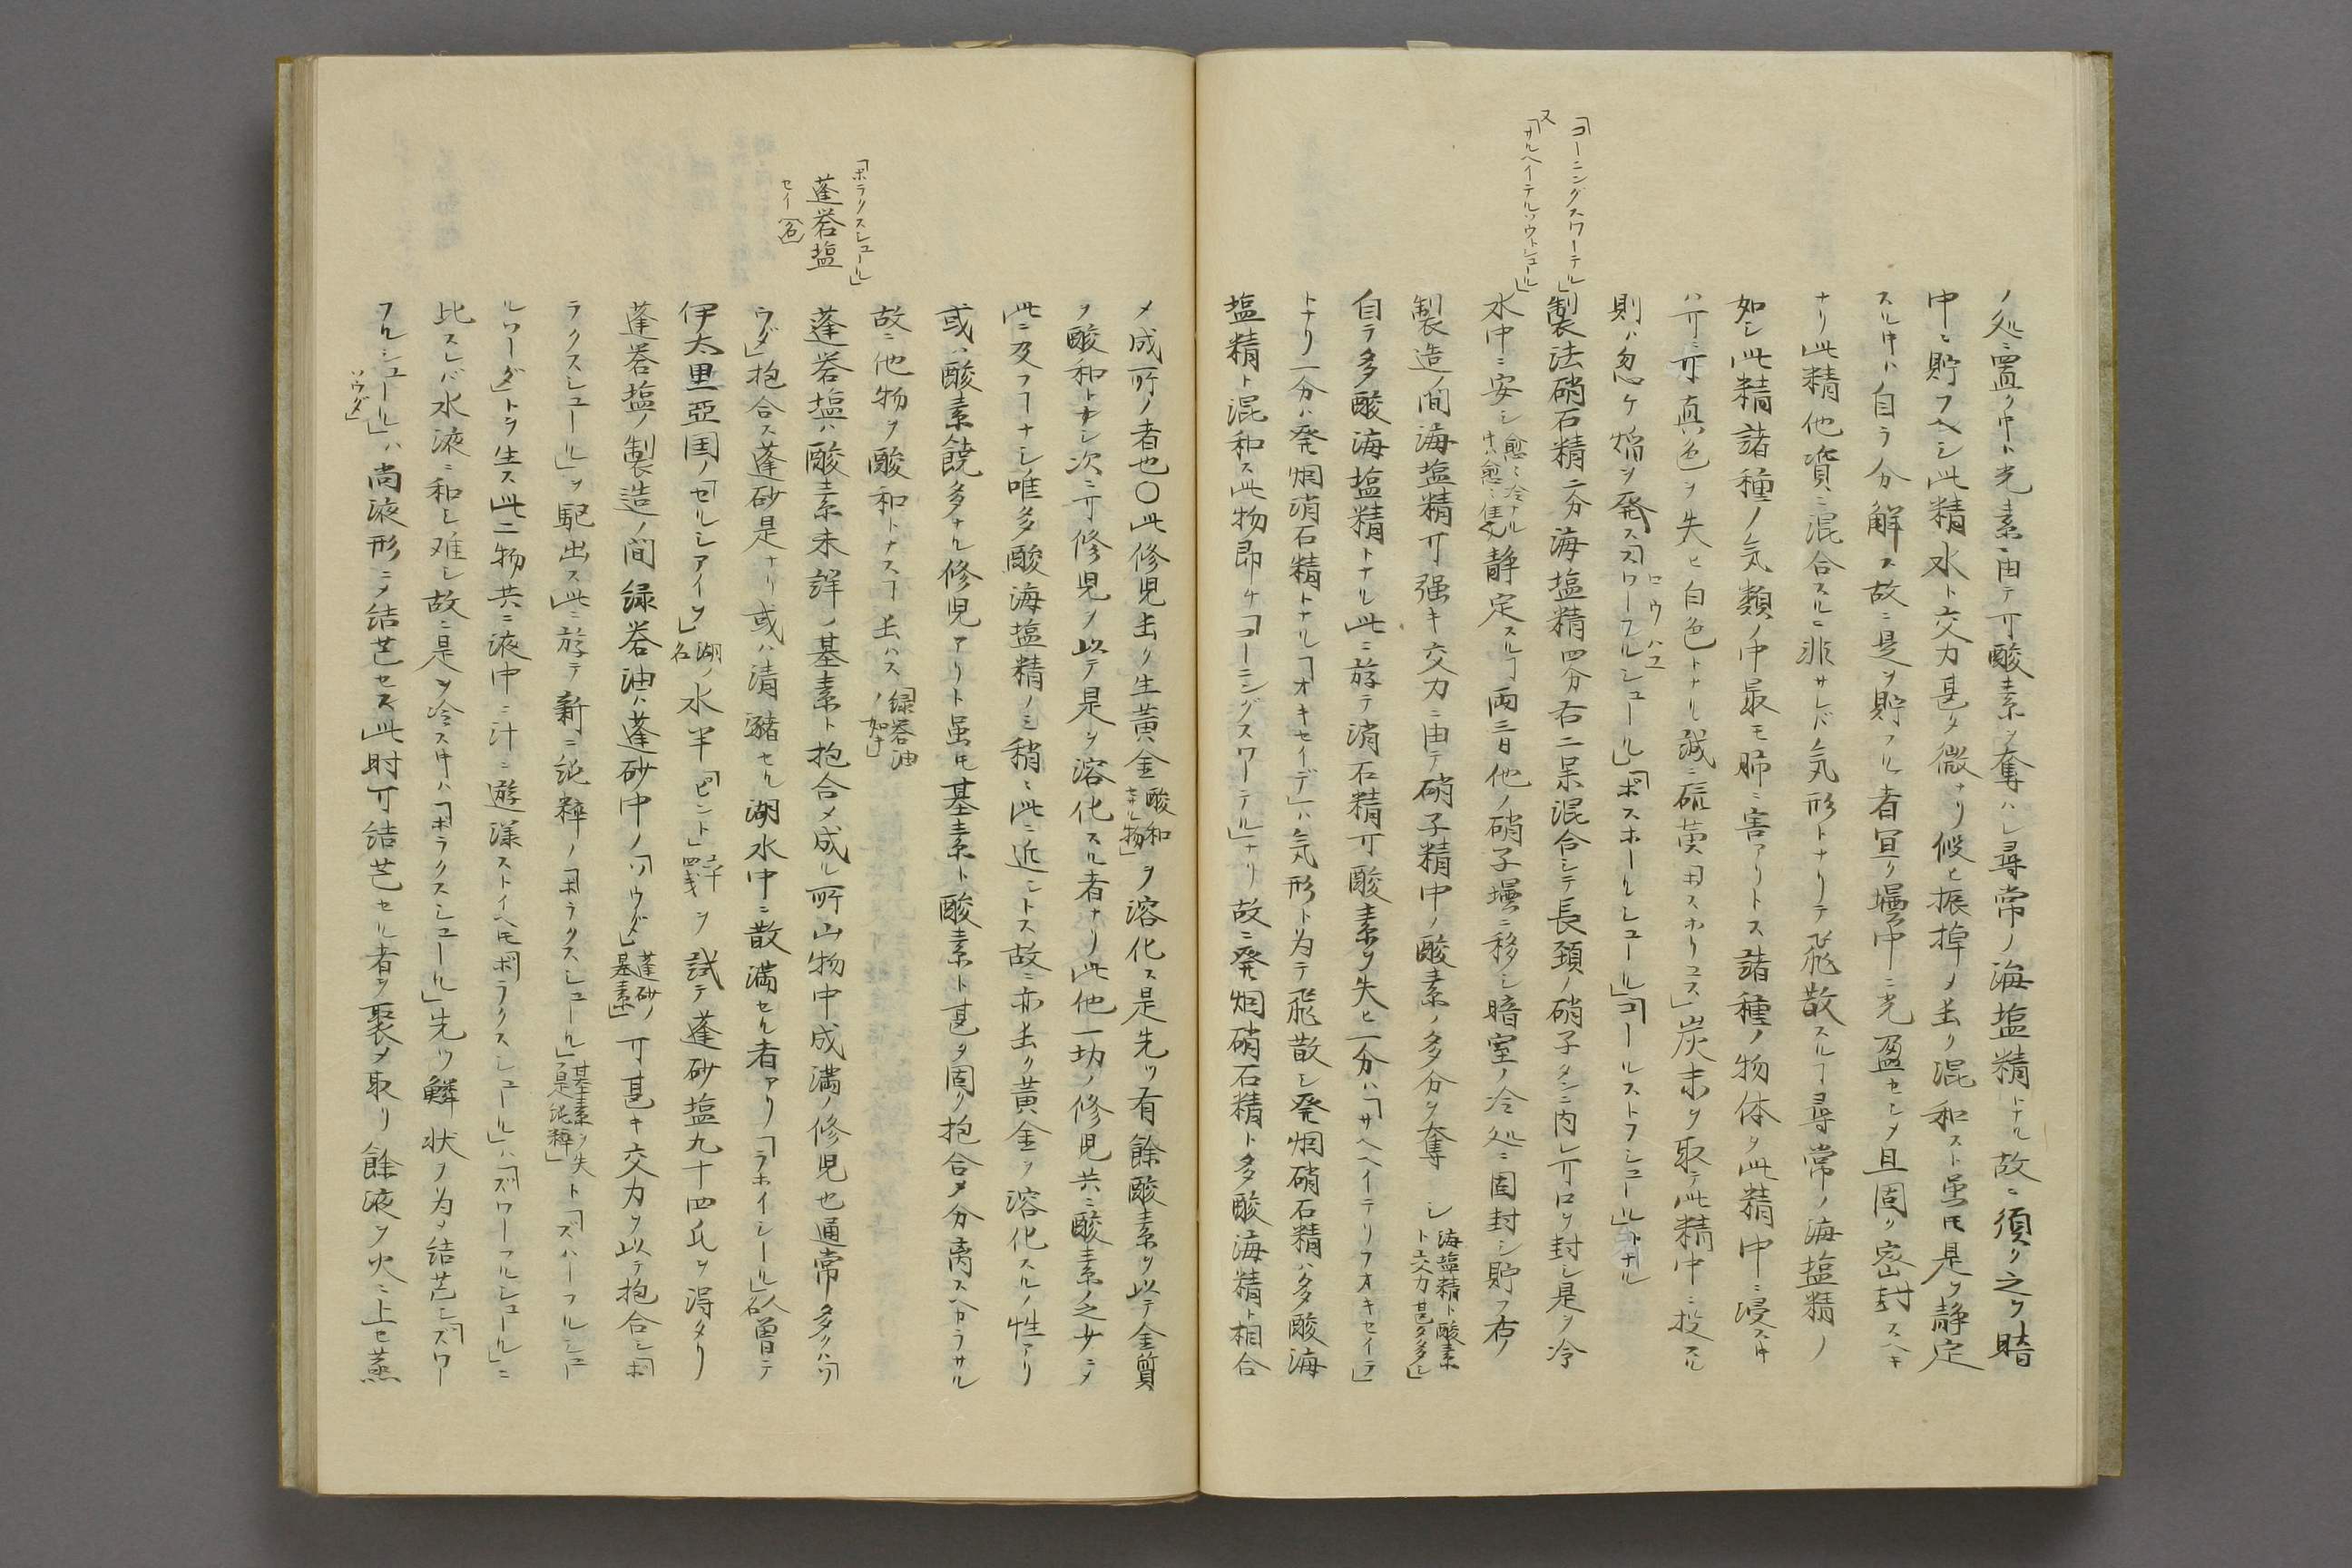 ノ処ニ置ク中ト光素ニ由テ可酸素ヲ奪ハレ尋常ノ海塩精トナル故ニ須ク之ヲ暗
中ニ貯フヘシ此精水ト交力甚タ微ナリ仮ヒ振掉メ去リ混和スト虽モ是ヲ静定
スル中ハ自ラ分解ス故ニ是ヲ貯フル者宜ク壜中ニ充盈セシメ且固ク密封スヘキ
ナリ此精他資ニ混合スルニ非サレド気形トナリテ飛散スルヿ尋常ノ海塩精ノ
如シ此精諸種ノ気類ノ中最モ肺ニ害アリトス諸種ノ物体ヲ此精中ニ浸ス中
ハ真色ヲ失ヒ白色トナル誠ニ硫黄「ホスホリユス」炭末ヲ取テ此精中ニ投スル
則ハ忽ケ焔ヲ発ス「スワーフルシュール」「ホスホールシュール」「コールストフシュール」トナル
「コーニングスワーテル」
又「サルヘイテルソウトシュール」
製法硝石精二分海塩精四分右二品混合シテ長頚ノ硝子タンニ内レ口ヲ封シ是ヲ冷
水中ニ安シ愈々冷ナル中ハ愈々佳矣静定スルヿ両三日他ノ硝子壜ニ移シ暗室ノ冷処ニ固封シ貯フ右ノ
製造ノ間海塩精強キ交力ニ由テ硝子精中ノ酸素ノ多分ヲ奪レ海塩精ト酸素ト交力甚タ多シ」
自ラ多酸海塩精トナル此ニ於テ消石精酸素ヲ失ヒ一分ハ「サヘヘイテリフオキセイデ」
トナリ一分ハ発烟消石精トナル「オキセイデ」ハ気形ト為テ飛散シ発烟硝石精ハ多酸海
塩精ト混和ス此物即ケ「コーニングスワーテル」ナリ故ニ発烟硝石精ト多酸海精ト相合
メ成所ノ者也〇此修児去リ生黄金酸和セサル物」ヲ溶化ス是先ツ有餘酸素ヲ以テ金質
ヲ酸和トナシ次ニ修児ヲ以テ是ヲ溶化スル者ナリ此他一切ノ修児共ニ酸素ノ之サニメ
此ニ及フヿナシ唯多酸海塩精ノミ稍々此ニ近ントス故ニ亦去リ黄金ヲ溶化スルノ性アリ
或ハ酸素饒多ナル修児アリト虽モ基素ト酸素ト甚タ固ク抱合メ分离スヘカラサル
故ニ他物ヲ酸和トナスヿ去ハス「緑礬油ノ如キ」
「ボラクスシュール」
蓬砦塩
蓬砦塩ハ酸素未詳ノ基素ト抱合メ成ル所山物中成満ノ修児也通常多クハ「ソ
ウダ」抱合ス蓬砂是ナリ或ハ清瀦セル湖水中ニ散満セル者アリ「ラホイシール」人名曽テ
伊太里亞国ノ「セルシアイヲ」湖ノ名水半「ピント」ヲ試テ蓬砂塩九十四氏ヲ淂タリ
蓬砦塩ノ製造ノ間緑砦油ハ蓬砂中ノ「ソウダ」蓬砂ノ基素」甚キ交力ヲ以テ抱合シ「ボ
ラクスシュール」ヲ駆出ス此ニ於テ新ニ純粋ノ「ボラクスシュール」基素ヲ失フ是純粋」ト「ズハーフルシュー
ルソーダ」トヲ生ス此二物共ニ液中ニ汁ニ遊漾ストイヘ𪜈「ボラクスシュール」ハ「ズワーフルシュール」ニ
比スレバ水液ニ和シ难シ故ニ是ヲ冷ス中ハ「ボラクスシュール」先ツ鱗状ヲ為メ結芒シ「ズワー
フルシュール」ソウダ」ハ尚液形ニメ結芒セス此時可結芒セル者ヲ聚メ取リ餘液ヲ火ニ上セ蒸